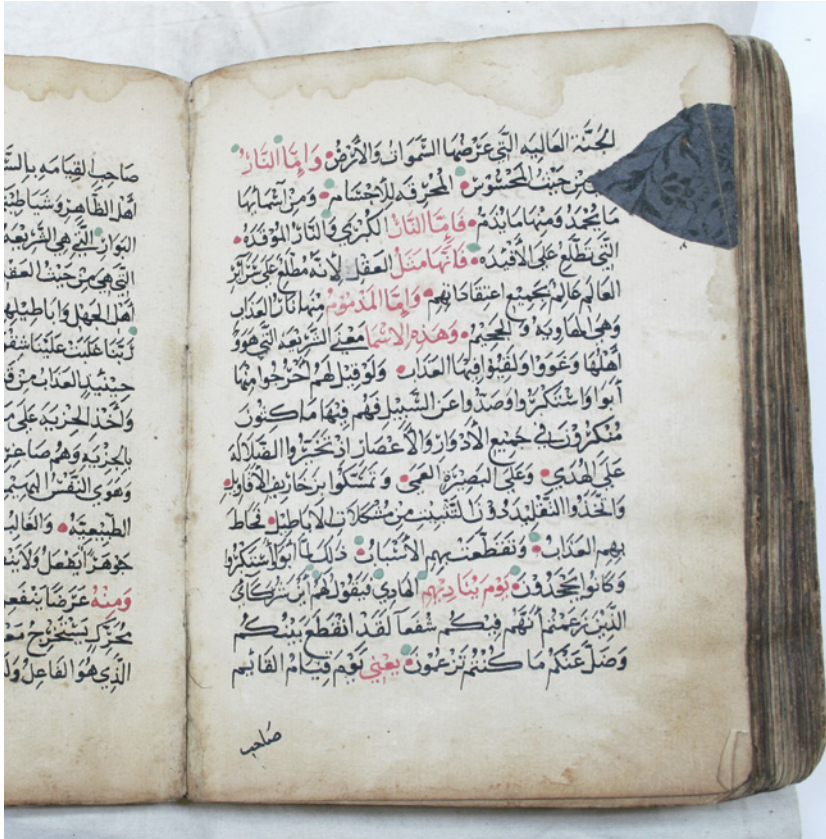 الجنة العالیه التي عرضها السموات والأرض وامّا النار
من حيث المحسوس المحرقه للاجسام ومن اسمائها
ما يحمد ومنها ما يذم فامّا النار الكبرى والنار الموقده
التي تطلع على الأفئده فانها مثل العقل لانه مطلع على سرائر
العالم عالم بجميع اعتقاداتهم وامّا المذموم منها نار العذاب
وهي الهاويه والجحيم وهذه الاسما معني الشريعه التي هووا
اهلها وغووا ولقيوا فيها العذاب ولو قيل لهم اخرجوا منها
أبوا واستنكروا وصدوا عن السبيل فهم فيها ماكثون
منكرون في جميع الأدوار والأعصار ان تخيروا الضلاله
على الهدي وعلى البصيرة العمى وتمسكوا بزخاريف الأقاويل
واتخذوا التقليد دون التثبيت من مشكلات الاباطيل فحاط
بهم العذاب وتقطعت بهم الأسباب ذلك لما ابوا استنكروا
وكانوا يجحدون يوم يناديهم الهادي فيقول لهم أين شركائ
الذين زعمتم أنهم فيكم شفعآ لقد انقطع بينكم
وضل عنكم ما كنتم تزعمون يعني يوم قيام القائم
صاحب
صاحب القيامه بالس
أهل الظاهر وشياطين
البوار التي هي الشريعه
التي هي من حيث العقل
أهل الجهل واباطيلهم
ربنا غلبت علينا شقو
حينئذ العذاب من
وأخذ الجزية على
بالجزيه وهم صاغر
وهوي النفس البهيميه
الطبيعيّه والغالب
جوهراً يفعل ولا
ومنه عرضا ينفعل
محرك يستخرج مع
الذي هو الفاعل